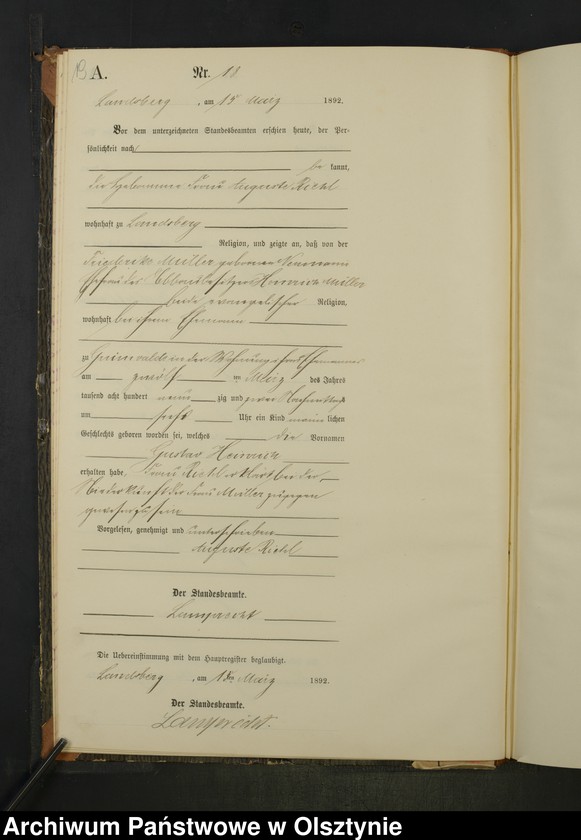 A. Nr. 18
Landsberg, am 15 März 1892.
Vor dem unterzeichneten Standesbeamten erschien heute, der Per-
sönlichkeit nach
be kannt,
die Hebamme Frau Auguste Riehl
wohnhaft zu Landsberg
Religion, und zeigte an, daß von der
Friederike Müller geborenen Neumann
Ehefrau des Heinrich Müller
beide evangelischer Religion,
wohnhaft bei ihrem Ehemann
zu Grünwalde in der Wohnung ihres Ehemannes
am zwölf ten März des Jahres
tausend acht hundert neun zig und zwei Nachmittags
um sechs Uhr ein Kind männ lichen
Geschlechts geboren worden sei, welches die Vornamen
Gustav Heinrich
erhalten habe. Frau Riehl erklärt bei der
Niederkunft der Frau Müller zugegen
gewesen zu sein
Vorgelesen, genehmigt und unterschrieben
Auguste Riehl
Der Standesbeamte.
Lamprecht
Die Uebereinstimmung mit dem Hauptregister beglaubigt.
Landsberg, am März 1892.
Der Standesbeamte.
Lamprecht.
Archiwum Państwowe w Olsztynie